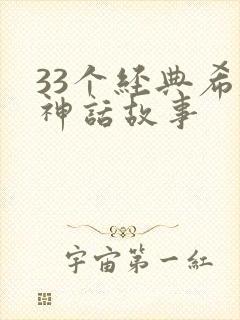 33个经典希
神话故事
宇宙第一红